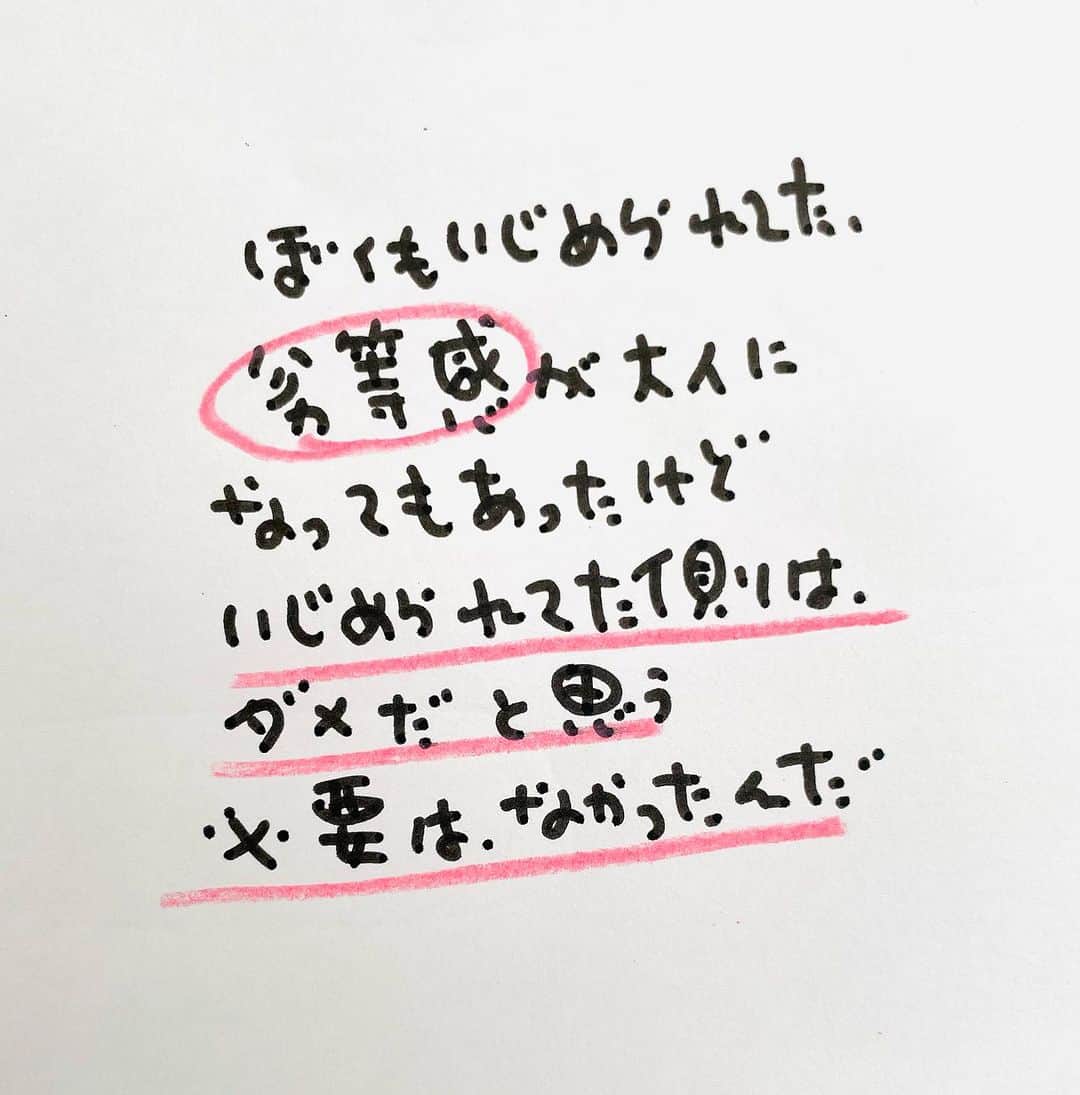 ぼくもいじめられてた、
劣等感が大人に
なってもあったけど
いじめられてた側は、
ダメだと思う
必要は、なかったんだ